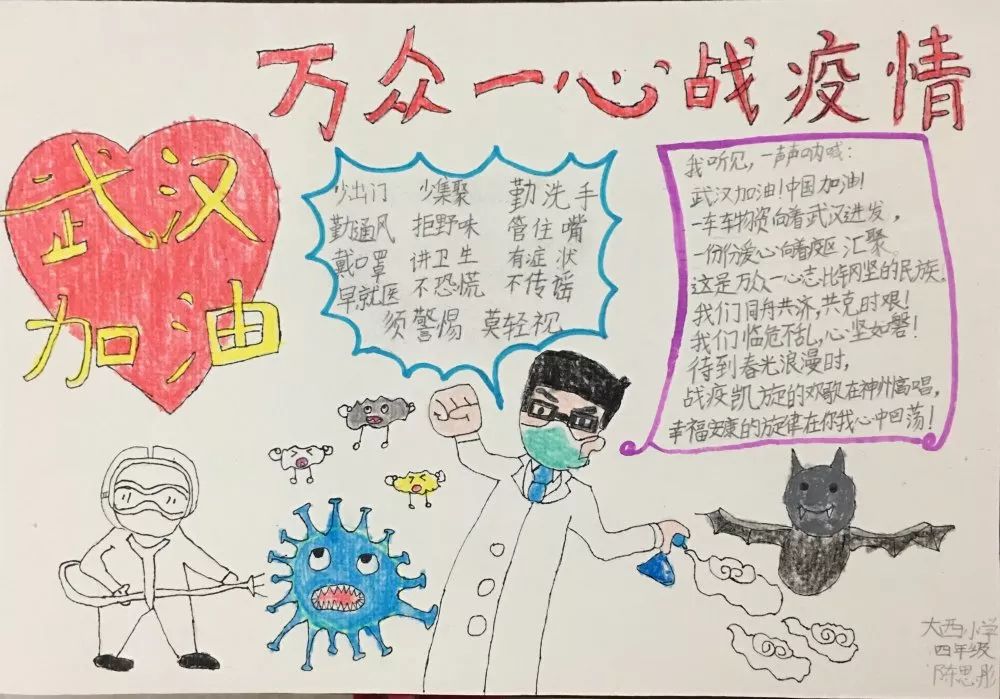 万众一心战疫情
武汉
加油
少出门 少集聚 勤洗手
勤通风 拒野味 管住嘴
戴口罩 讲卫生 有症状
早就医 不恐慌 不传谣
须警惕 莫轻视
我听见,一声声呐喊:
武汉加油!中国加油!
一车车物资向着武汉进发,
一份份爱心向着疫区汇聚,
这是万众一心志比钢坚的民族。
我们同舟共济,共克时艰!
我们临危不乱,心坚如磐!
待到春光浪漫时,
战疫凯旋的欢歌在神州高唱,
幸福安康的旋律在你我心中回荡!
大西小学
四年级
陈思彤